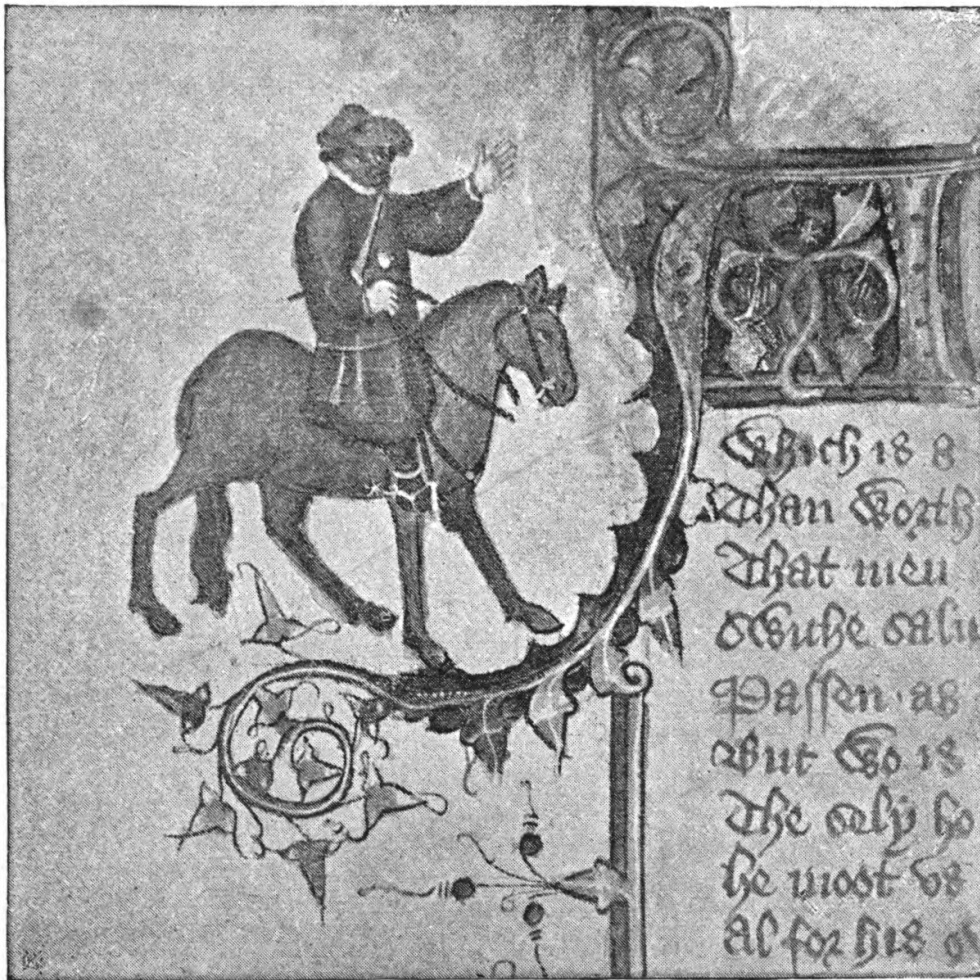 Which is a
Than worth
That men
Swiche salu
Passen as
But wo is
The sely ho
he moot vs
Al for his